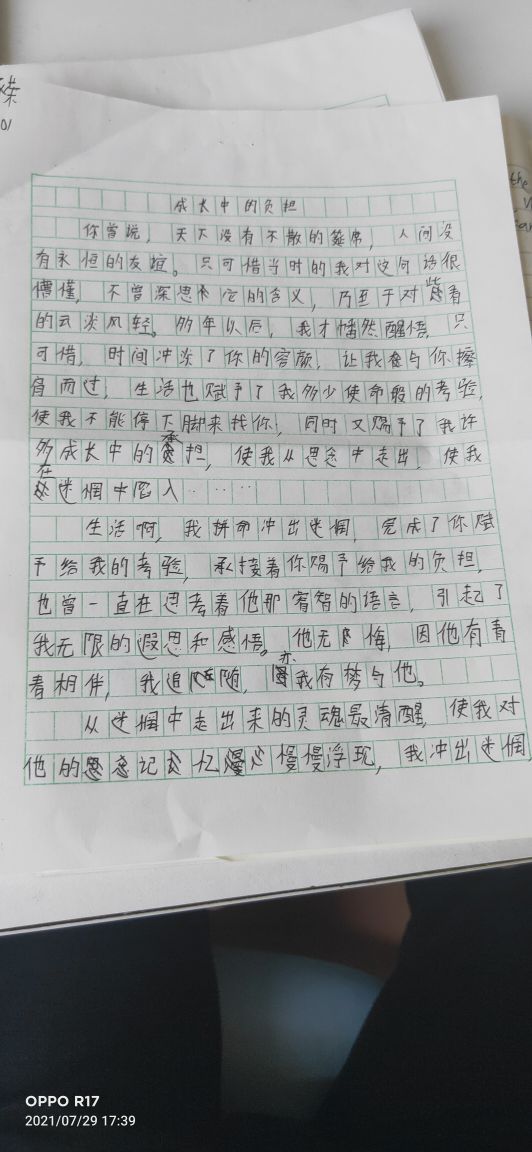 成长中的负担
你曾说，天下没有不散的筵席，人间没
有永恒的友谊。只可惜当时的我对这句话很
懵懂，不曾深思它的含义，乃至于对看
的云淡风轻。多年以后，我才幡然醒悟，只
可惜，时间冲淡了你的容颜，让我与你擦
肩而过；生活也赋予了我多少使命般的考验，
使我不能停下脚来找你，同时又赐予了我许
多成长中的担，使我从思念中走出，使我
在迷惘中陷入……
生活啊，我拼命冲出迷惘，完成了你赋
予给我的考验，承接着你赐予给我的负担，
也曾一直在思考着他那睿智的语言，引起了
我无限的遐思和感悟。他无悔，因他有青
春相伴，我追随，亦我有梦与他。
从迷惘中走出来的灵魂最清醒，使我对
他的记忆慢慢浮现，我冲出迷惘
the
OPPO R17
2021/07/29 17:39